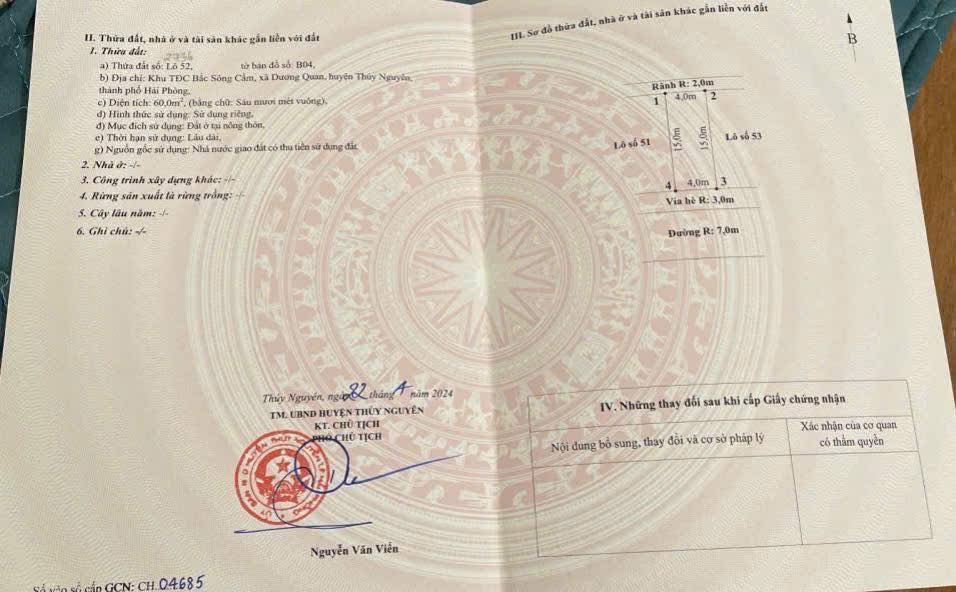 II. Thửa đất, nhà ở và tài sản khác gắn liền với đất
1. Thửa đất:
a) Thửa đất số: Lô 52, tờ bản đồ số: B04,
b) Địa chỉ: Khu TĐC Bắc Sông Cấm, xã Dương Quan, huyện Thủy Nguyên,
thành phố Hải Phòng,
c) Diện tích: 60,0m², (bằng chữ: Sáu mươi mét vuông),
d) Hình thức sử dụng: Sử dụng riêng,
đ) Mục đích sử dụng: Đất ở tại nông thôn,
e) Thời hạn sử dụng: Lâu dài,
g) Nguồn gốc sử dụng: Nhà nước giao đất có thu tiền sử dụng đất.
2. Nhà ở: -/-
3. Công trình xây dựng khác: -/-
4. Rừng sản xuất là rừng trồng: -/-
5. Cây lâu năm: -/-
6. Ghi chú: -/-
Thủy Nguyên, ngày 22 tháng 4 năm 2024
TM. UBND HUYỆN THỦY NGUYÊN
KT. CHỦ TỊCH
PHÓ CHỦ TỊCH
Nguyễn Văn Viễn
Số vào sổ cấp GCN: CH.04685
III. Sơ đồ thửa đất, nhà ở và tài sản khác gắn liền với đất
B
Rãnh R: 2,0m
1 4,0m 2
Lô số 51 15,0m 15,0m Lô số 53
4 4,0m 3
Vỉa hè R: 3,0m
Đường R: 7,0m
IV. Những thay đổi sau khi cấp Giấy chứng nhận
Nội dung bổ sung, thay đổi và cơ sở pháp lý
Xác nhận của cơ quan
có thẩm quyền